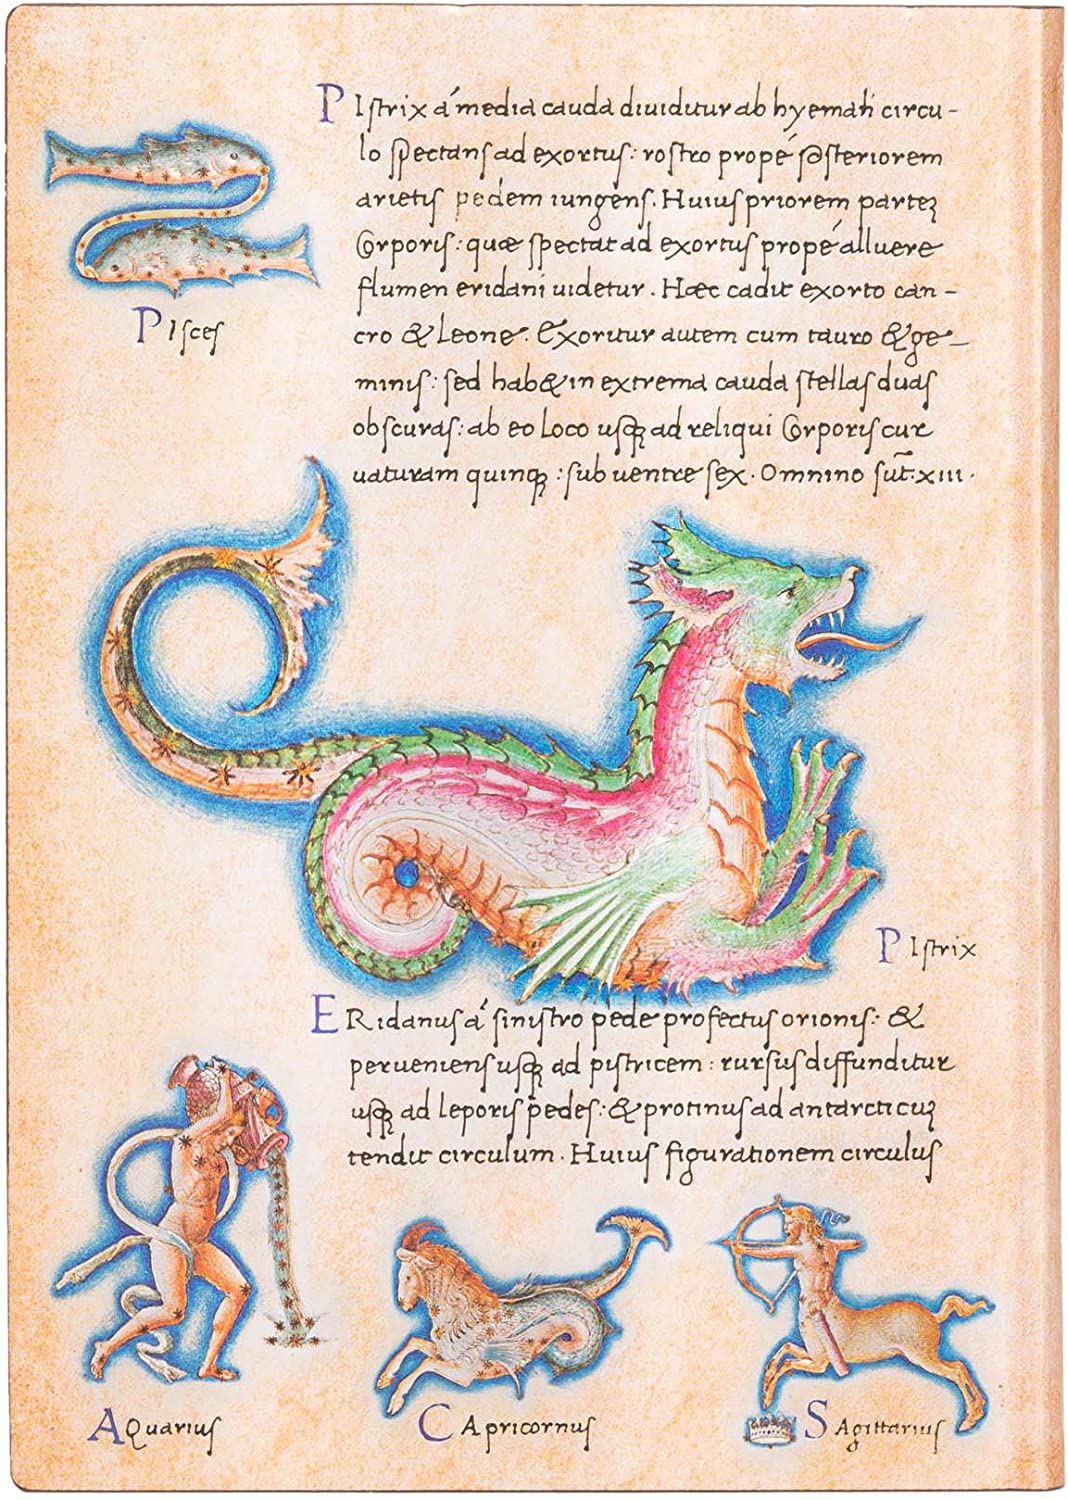 PIstrix á media cauda diuiditur ab hyemali circu-
lo spectans ad exortus: rostro propé posteriorem
arietis pedem iungens. Huius priorem partez
Corporis: quæ spectat ad exortus propé alluere
flumen eridani uidetur. Hæc cadit exorto can-
cro & Leone. Exoritur autem cum tauro & ge-
minis: sed hab& in extrema cauda stellas duas
obscuras: ab eo loco usqꝫ ad reliqui Corporis cur
uaturam quinqꝫ: sub uentre sex. Omnino sūt. xiii.
PIsces
PIstrix
ERidanus á sinistro pede profectus orionis: &
perueniens usqꝫ ad pistricem: rursus diffunditur
usqꝫ ad leporis pedes: & protinus ad antarcticuz
tendit circulum. Huius figurationem circulus
AQuarius
CApricornus
SAgittarius